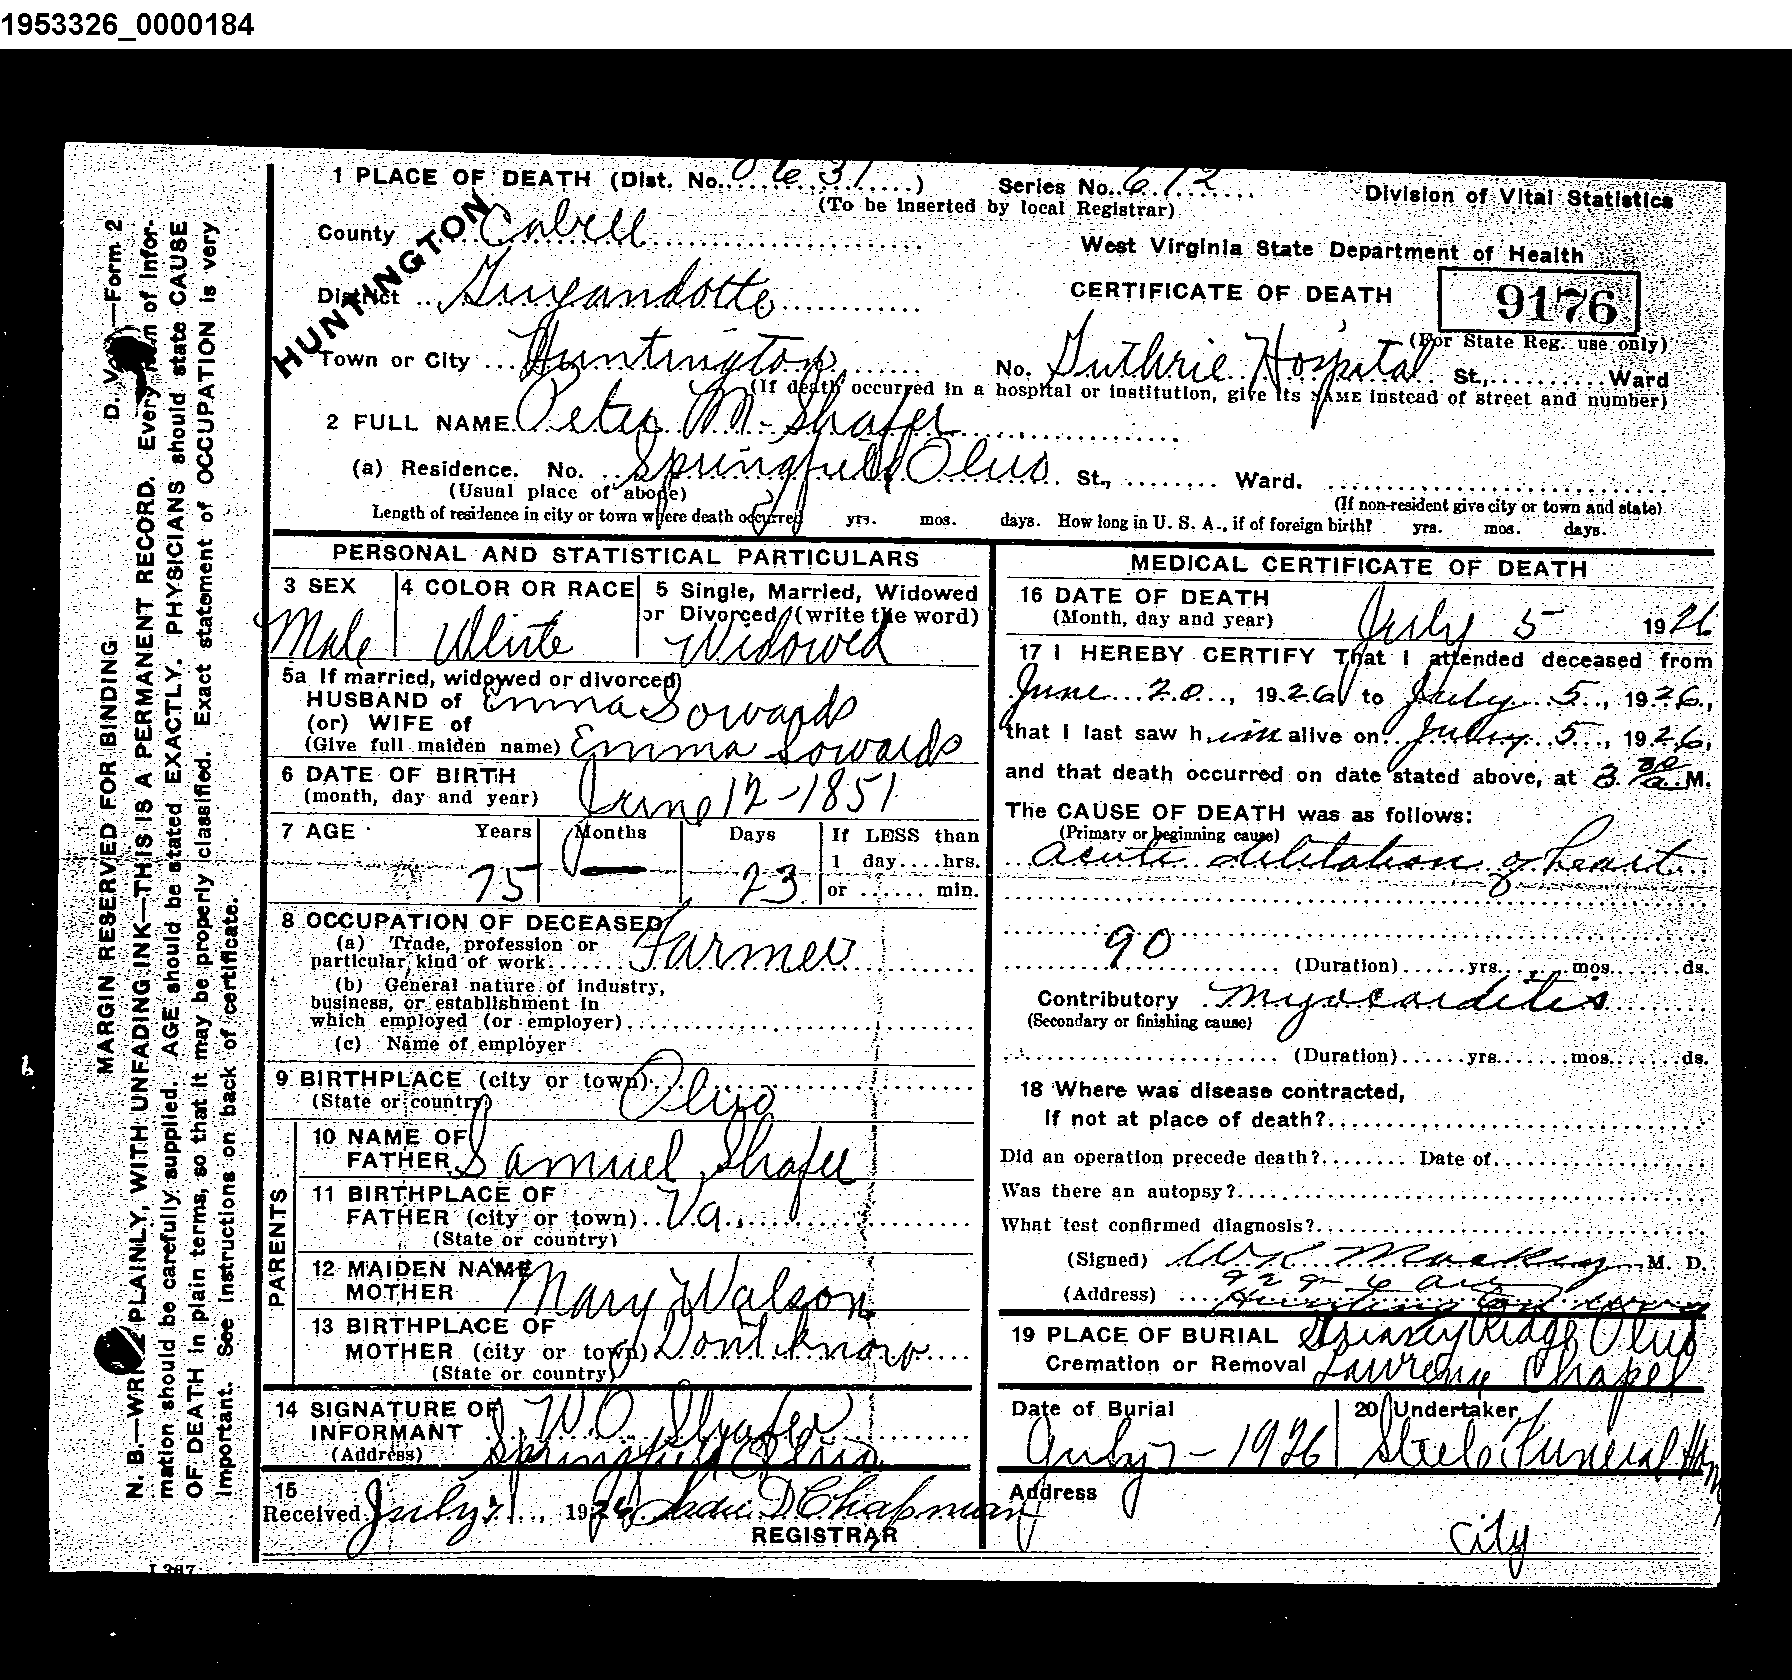 1953326_0000184
1 PLACE OF DEATH (Dist. No. 0631)
Series No. 612
Division of Vital Statistics
(To be inserted by local Registrar)
HUNTINGTON
County Cabell
West Virginia State Department of Health
District Guyandotte
CERTIFICATE OF DEATH
9176
(For State Reg. use only)
Town or City Huntington
No. Guthrie Hospital St., Ward
(If death occurred in a hospital or institution, give its NAME instead of street and number)
2 FULL NAME Peter M. Shafer
(a) Residence. No. Springfield Ohio St., Ward.
(Usual place of abode)
(If non-resident give city or town and state)
Length of residence in city or town where death occurred yrs. mos. days. How long in U. S. A., if of foreign birth? yrs. mos. days.
PERSONAL AND STATISTICAL PARTICULARS
3 SEX
Male
4 COLOR OR RACE
White
5 Single, Married, Widowed
or Divorced (write the word)
Widowed
5a If married, widowed or divorced
HUSBAND of Emma Sowards
(or) WIFE of
(Give full maiden name) Emma Sowards
6 DATE OF BIRTH
(month, day and year) June 12-1851
7 AGE Years Months Days
75 — 23
If LESS than
1 day....hrs.
or ...... min.
8 OCCUPATION OF DECEASED
(a) Trade, profession or
particular kind of work Farmer
(b) General nature of industry,
business, or establishment in
which employed (or employer)
(c) Name of employer
9 BIRTHPLACE (city or town)
(State or country) Ohio
PARENTS
10 NAME OF
FATHER Samuel Shafer
11 BIRTHPLACE OF
FATHER (city or town) Va.
(State or country)
12 MAIDEN NAME
MOTHER Mary Walson
13 BIRTHPLACE OF
MOTHER (city or town) Dont know
(State or country)
14 SIGNATURE OF
INFORMANT W.O. Shafer
(Address) Springfield Ohio
15
Received July 1926 Sadie D Chapman
REGISTRAR
MEDICAL CERTIFICATE OF DEATH
16 DATE OF DEATH
(Month, day and year) July 5 1926
17 I HEREBY CERTIFY That I attended deceased from
June 20, 1926 to July 5, 1926,
that I last saw him alive on July 5, 1926,
and that death occurred on date stated above, at 3.30 a. M.
The CAUSE OF DEATH was as follows:
(Primary or beginning cause)
acute dilitation of heart
90
(Duration) yrs. mos. ds.
Contributory myocarditis
(Secondary or finishing cause)
(Duration) yrs. mos. ds.
18 Where was disease contracted,
if not at place of death?
Did an operation precede death? Date of
Was there an autopsy?
What test confirmed diagnosis?
(Signed) M. D.
929-6 ave
(Address) Huntington
19 PLACE OF BURIAL Ridge Ohio
Cremation or Removal Lawrence Chapel
Date of Burial
July 7-1926
20 Undertaker
Steele Funeral Home
Address
City
D. V. —Form 2
MARGIN RESERVED FOR BINDING
N. B.—WRITE PLAINLY, WITH UNFADING INK—THIS IS A PERMANENT RECORD. Every item of infor-
mation should be carefully supplied. AGE should be stated EXACTLY. PHYSICIANS should state CAUSE
OF DEATH in plain terms, so that it may be properly classified. Exact statement of OCCUPATION is very
important. See instructions on back of certificate.